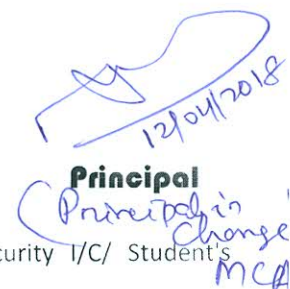 12/04/2018
Principal
(Principal in
Change
curity I/C/ Student's
MCA